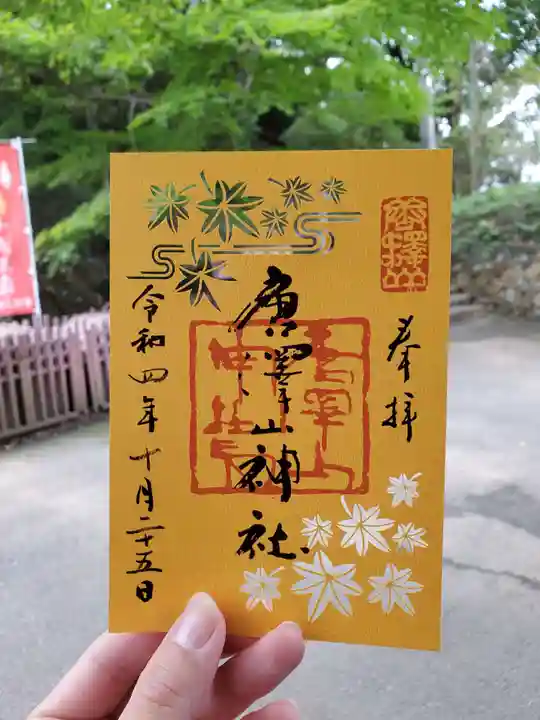 奉拝
唐澤山
唐澤山神社
令和四年十月二十五日